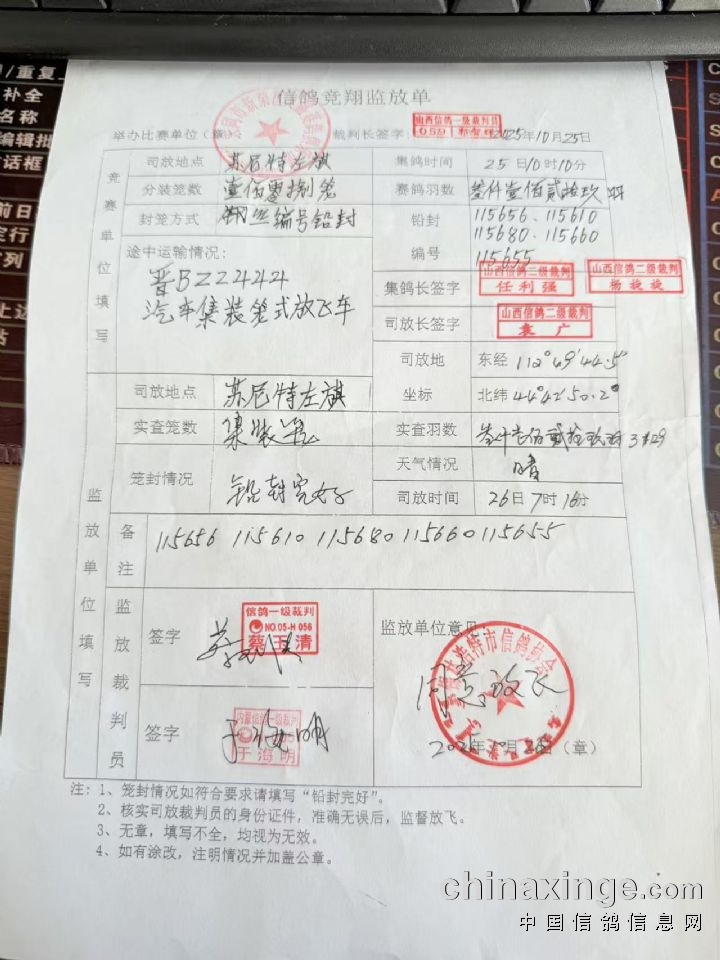 信鸽竞翔监放单
举办比赛单位（章） 裁判长签字： 山西信鸽一级裁判员 059 2025年10月25日
竞赛单位填写
司放地点 苏尼特左旗 集鸽时间 25日10时10分
分装笼数 壹佰零捌笼 赛鸽羽数 叁仟壹佰贰拾玖羽
封笼方式 钢丝编号铅封 铅封 115656、115610
115680、115660
编号 115655
途中运输情况：
晋BZZ444
汽车集装笼式放飞车
集鸽长签字 山西信鸽二级裁判 任利强 山西信鸽二级裁判 杨旋旋
司放长签字 山西信鸽二级裁判 袁广
司放地 东经 112°49′44.5″
坐标 北纬 44°42′50.2″
监放单位填写
司放地点 苏尼特左旗
实查笼数 集装笼 实查羽数 叁仟壹佰贰拾玖羽 3129
笼封情况 铅封完好 天气情况 晴
司放时间 26日7时16分
备注 115656 115610 115680 115660 115655
监放裁判员
签字 信鸽一级裁判 NO.05-H 056 蔡玉清
签字 于海明 内蒙信鸽一级裁判 于海明
监放单位意见：
同意放飞
浩特市信鸽协会
2025年10月26日（章）
注：1、笼封情况如符合要求请填写“铅封完好”。
2、核实司放裁判员的身份证件，准确无误后，监督放飞。
3、无章，填写不全，均视为无效。
4、如有涂改，注明情况并加盖公章。
/重复
补全
名称
编辑
话框
前日
定行
列
chinaxinge.com
中国信鸽信息网